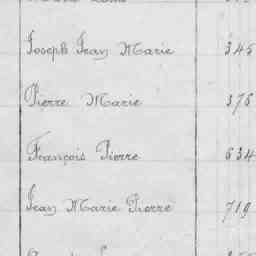 Joseph Jean Marie 345
Pierre Marie 376
François Pierre 634
Jean Marie Pierre 719